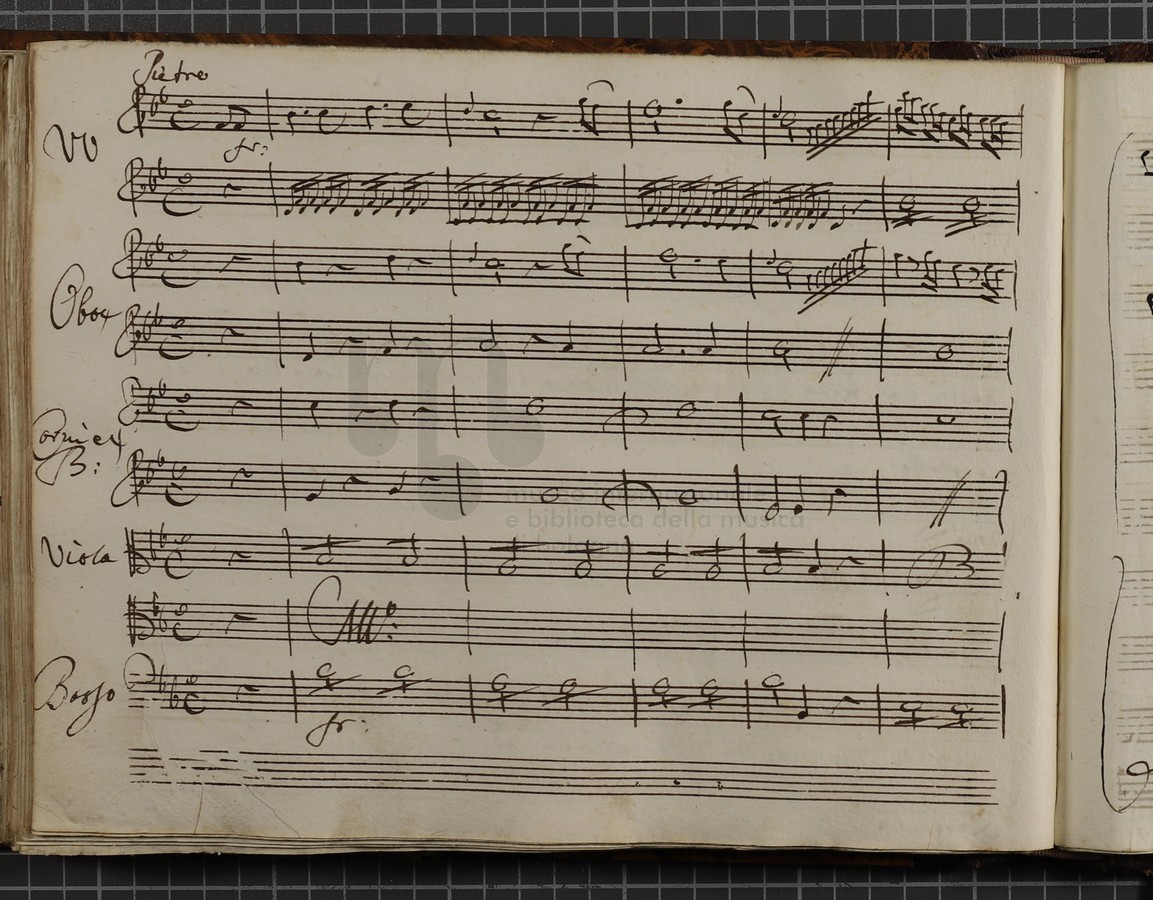 Pietro
VV
fr:
Oboe
Corni ex
B:
Viola
Basso
fr:
museo internazionale
e biblioteca della musica
di bologna